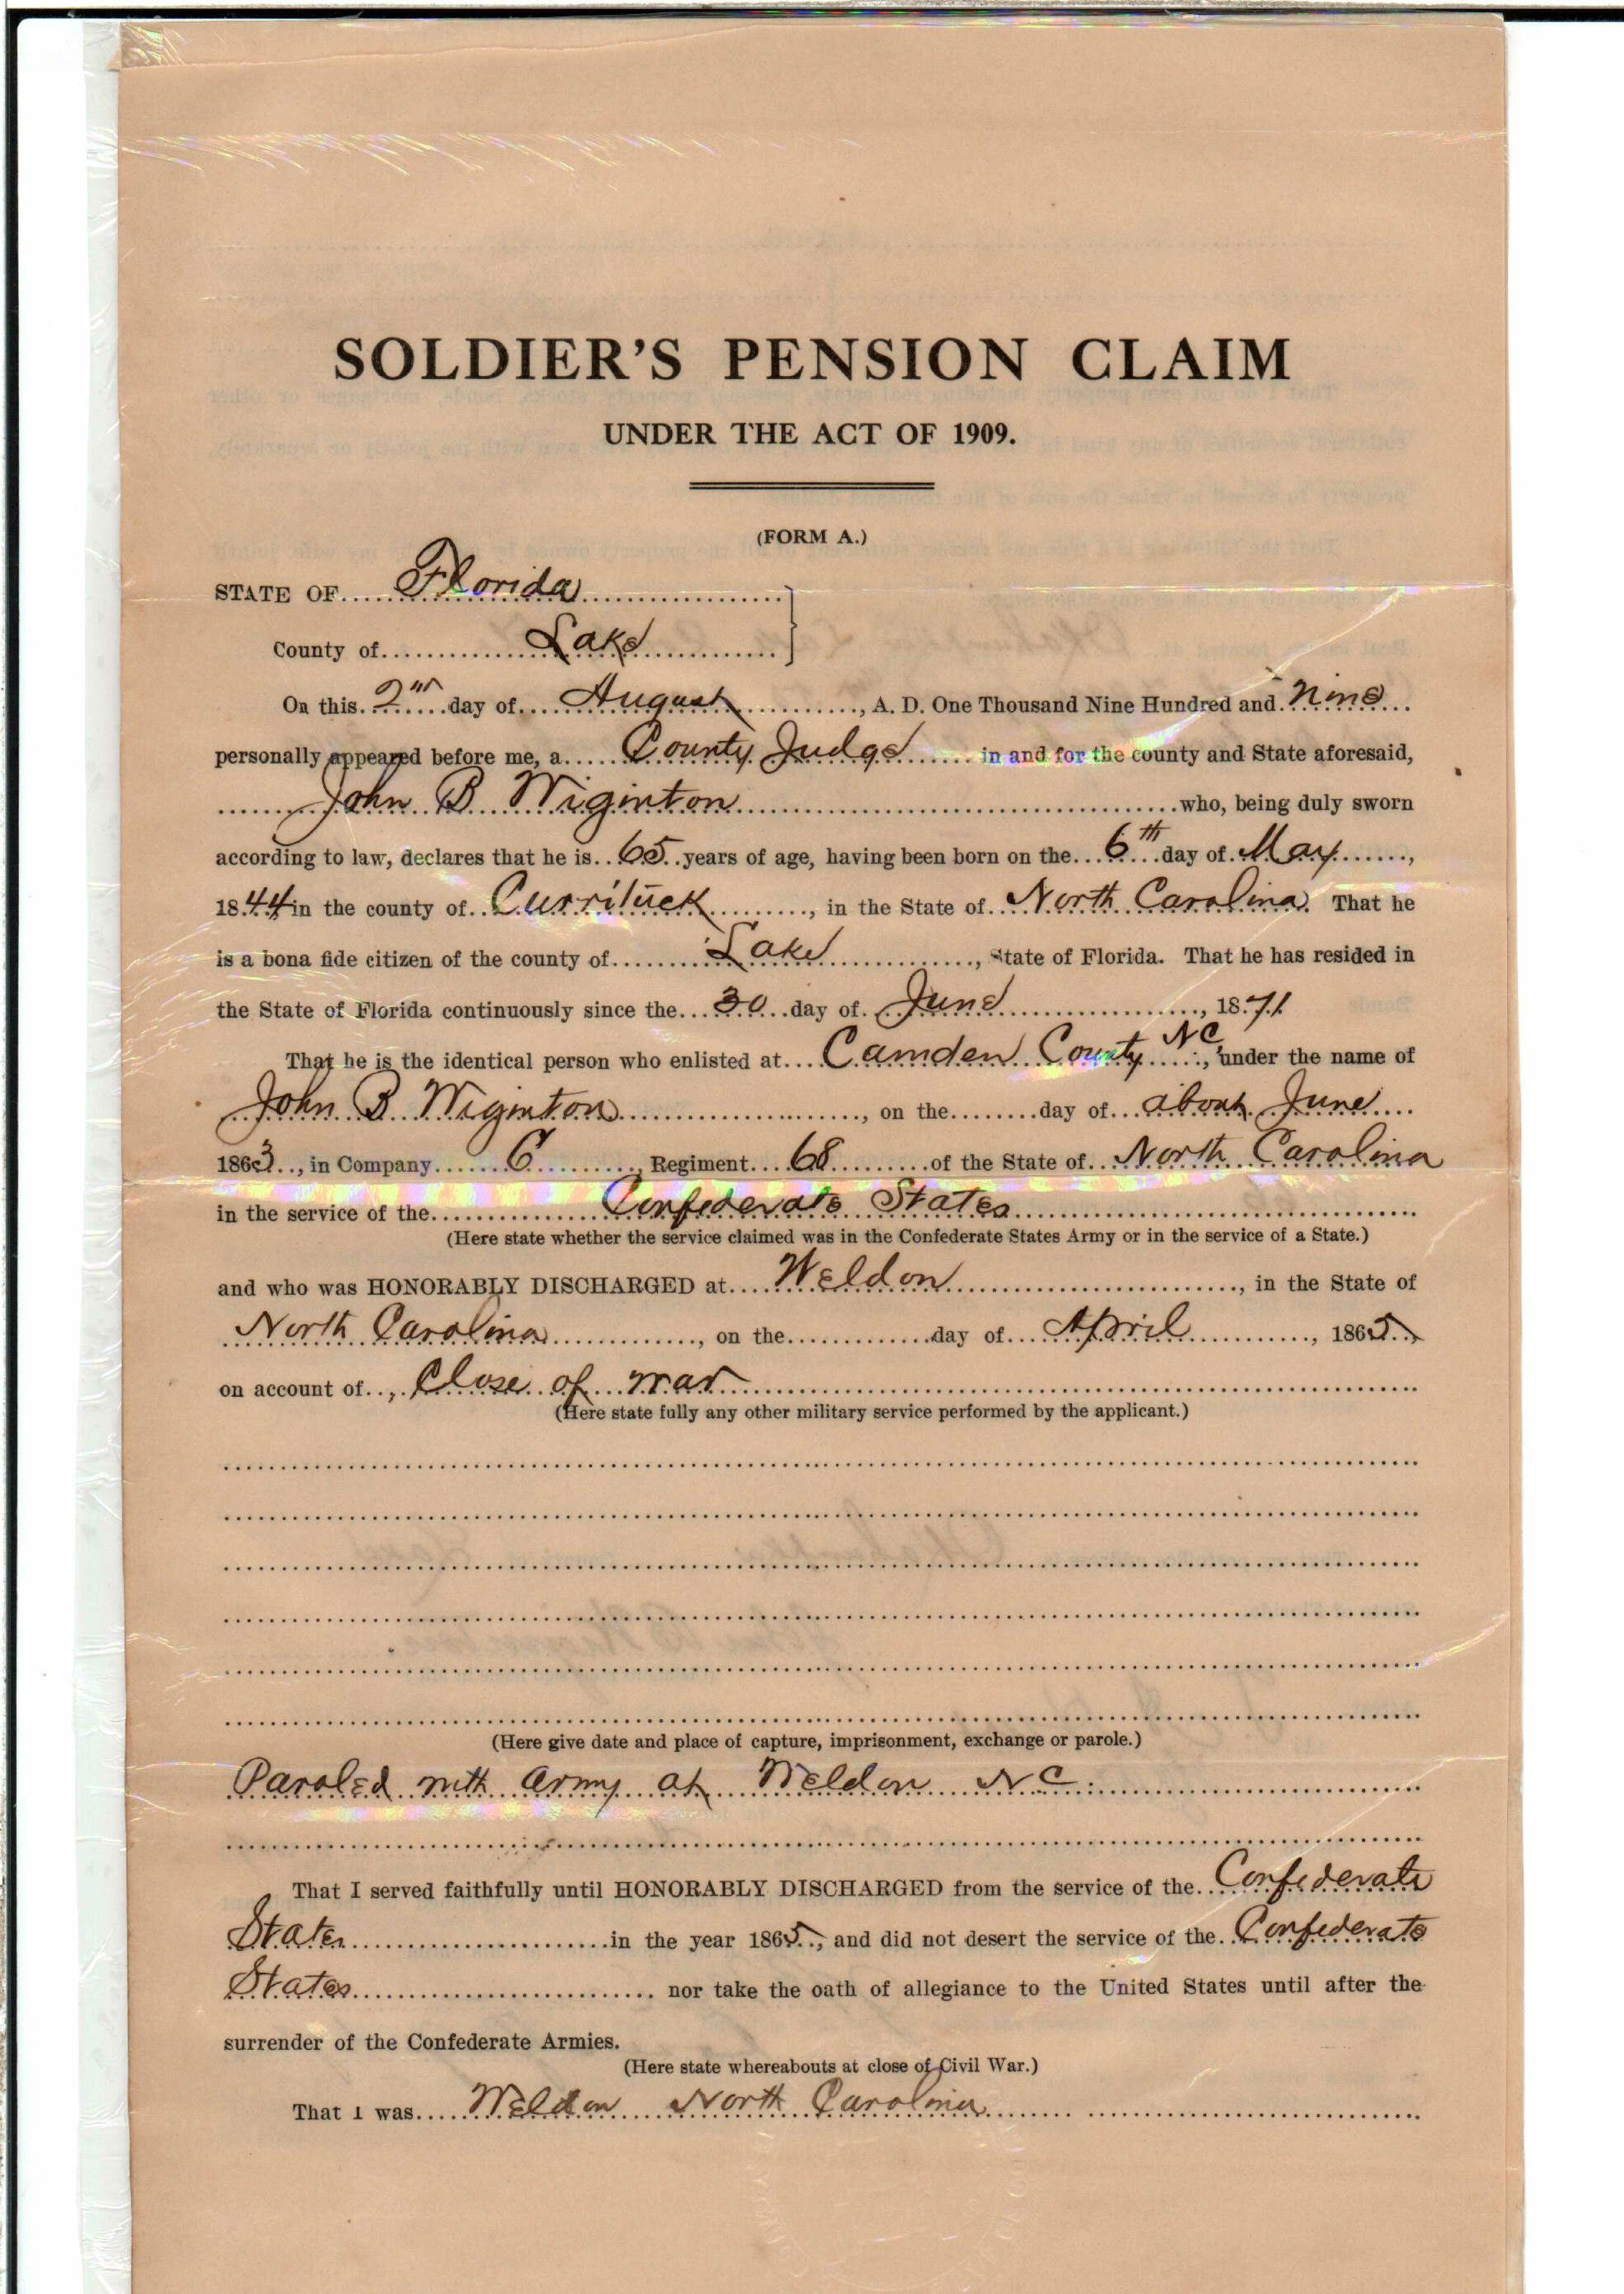 SOLDIER'S PENSION CLAIM
UNDER THE ACT OF 1909.
(FORM A.)
STATE OF Florida
County of Lake
On this 2nd day of August, A. D. One Thousand Nine Hundred and Nine
personally appeared before me, a County Judge in and for the county and State aforesaid,
John B Wiginton who, being duly sworn
according to law, declares that he is 65 years of age, having been born on the 6th day of May,
1844 in the county of Currituck, in the State of North Carolina. That he
is a bona fide citizen of the county of Lake, State of Florida. That he has resided in
the State of Florida continuously since the 30 day of June, 1871
That he is the identical person who enlisted at Camden County NC, under the name of
John B Wiginton, on the day of about June
1863, in Company C, Regiment 68 of the State of North Carolina
in the service of the Confederate States
(Here state whether the service claimed was in the Confederate States Army or in the service of a State.)
and who was HONORABLY DISCHARGED at Weldon, in the State of
North Carolina, on the day of April, 1865,
on account of, Close of war
(Here state fully any other military service performed by the applicant.)
(Here give date and place of capture, imprisonment, exchange or parole.)
Paroled with army at Weldon N C.
That I served faithfully until HONORABLY DISCHARGED from the service of the Confederate
States in the year 1865, and did not desert the service of the Confederate
States nor take the oath of allegiance to the United States until after the
surrender of the Confederate Armies.
(Here state whereabouts at close of Civil War.)
That I was Weldon North Carolina